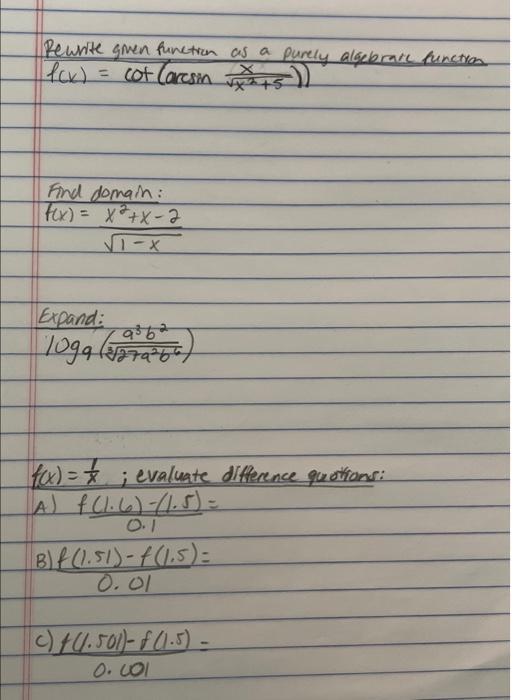 Rewrite given function as a purely algebraic function
f(x) = cot(arcsin x/√x²+5))
Find domain:
f(x) = x²+x-2
√1-x
Expand:
log₉(a³b²/∛27a²b⁶)
f(x) = 1/x ; evaluate difference quotions:
A) f(1.6)-(1.5) =
0.1
B) f(1.51)-f(1.5) =
0.01
C) f(1.501)-f(1.5) =
0.001